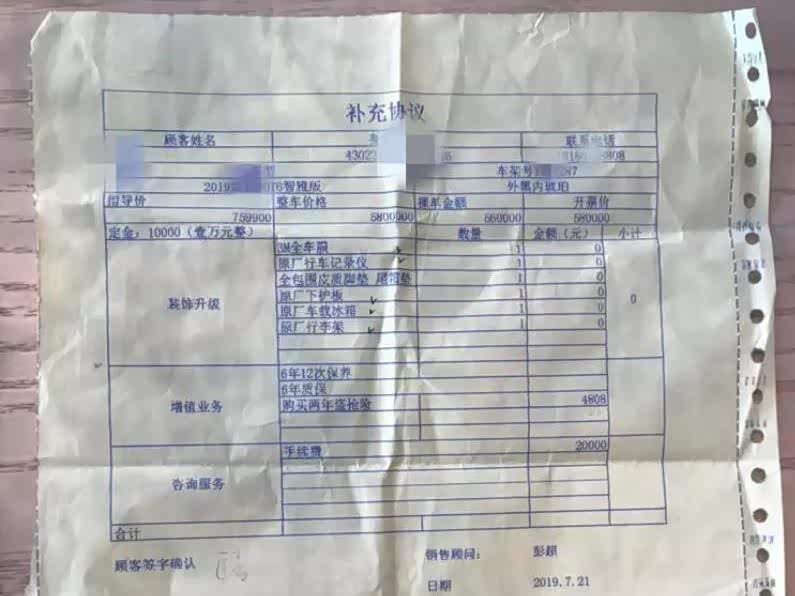 补充协议
顾客姓名 联系电话
4302 808
车架号 287
2019 0T6智雅版 外黑内琥珀
指导价 整车价格 裸车金额 开票价
759900 5800000 560000 580000
定金：10000（壹万元整） 数量 金额（元） 小计
3M全车膜 1 0
原厂行车记录仪 1 0
全包围皮质脚垫 尾箱垫 1 0
装饰升级 原厂下护板 1 0 0
原厂车载冰箱 1 0
原厂行李架 1 0
6年12次保养
6年质保
增值业务 购买两年盗抢险 4808
手续费 20000
咨询服务
合计
顾客签字确认 销售顾问： 彭
日期 2019.7.21